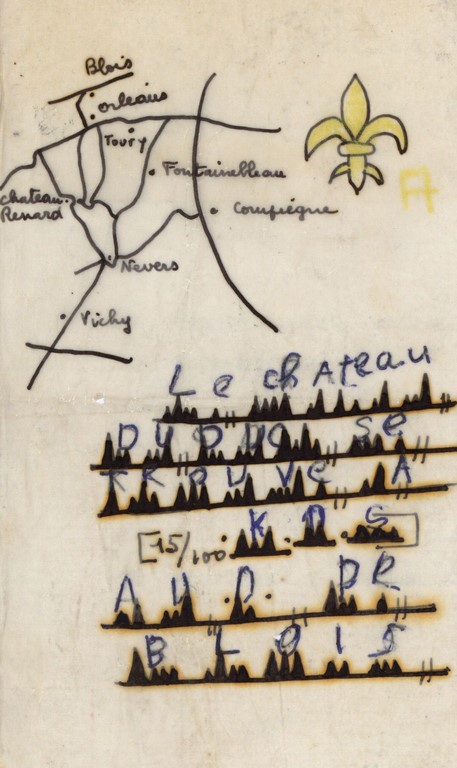 Blois
orleans
Toury
Fontainebleau
chateau.
Renard
Compiègne
Nevers
Vichy
A
Le chAteau
DU DUC Se
TROUVE A
[15/100 K. M. S]
A U . D. DE
BLOIS